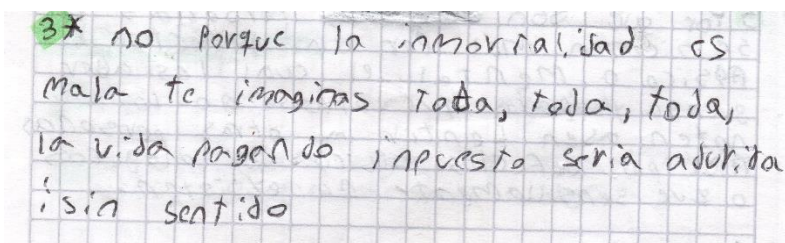 3* no porque la inmortalidad es
mala te imaginas Toda, toda, toda,
la vida pagando inpuesto seria aburrida
i sin sentido